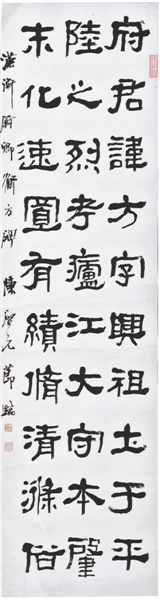 府君諱方字興祖土于平
陸之烈考廬江大守本肇
末化速有績脩清滌俗
漢衛尉卿衡方碑 陳元節臨